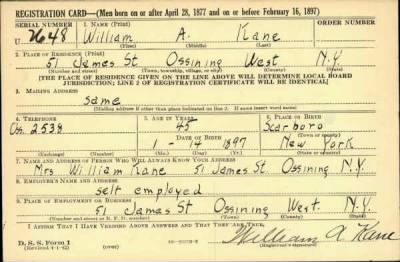 REGISTRATION CARD—(Men born on or after April 28, 1877 and on or before February 16, 1897)
SERIAL NUMBER 1. NAME (Print)
U 7648 William A. Kane
(First) (Middle) (Last)
2. PLACE OF RESIDENCE (Print)
51 James St. Ossining West N.Y.
(Number and street) (Town, township, village, or city) (County) (State)
[THE PLACE OF RESIDENCE GIVEN ON THE LINE ABOVE WILL DETERMINE LOCAL BOARD
JURISDICTION; LINE 2 OF REGISTRATION CERTIFICATE WILL BE IDENTICAL]
3. MAILING ADDRESS
same
[Mailing address if other than place indicated on line 2. If same insert word same]
4. TELEPHONE 5. AGE IN YEARS 6. PLACE OF BIRTH
Os. 2538 45 Scarboro
DATE OF BIRTH (Town or county)
1-14 1897 New York
(Exchange) (Number) (Mo.) (Day) (Yr.) (State or country)
7. NAME AND ADDRESS OF PERSON WHO WILL ALWAYS KNOW YOUR ADDRESS
Mrs William Kane 51 James St. Ossining N.Y.
8. EMPLOYER'S NAME AND ADDRESS
self employed
9. PLACE OF EMPLOYMENT OR BUSINESS
51 James St Ossining West. N.Y.
(Number and street or R. F. D. number) (Town) (County) (State)
I AFFIRM THAT I HAVE VERIFIED ABOVE ANSWERS AND THAT THEY ARE TRUE.
D. S. S. Form 1
(Revised 4-1-42) (Registrant's signature)
William A Kane